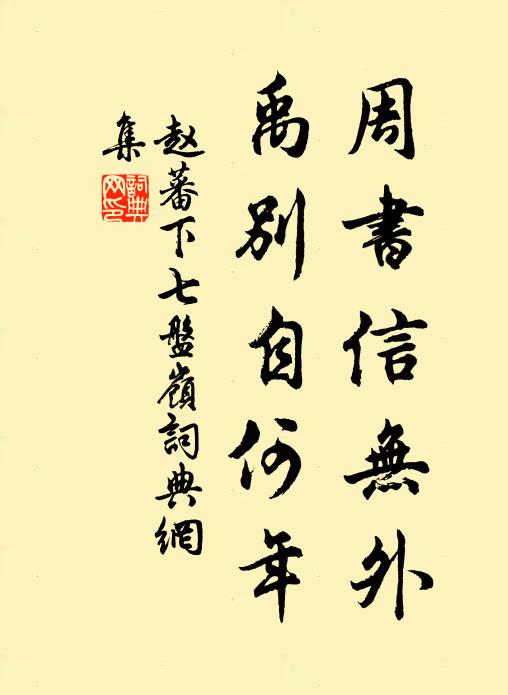 周書信無外
禹別自何年
赵蕃下七盤嶺詞典網
集
詞典
网印